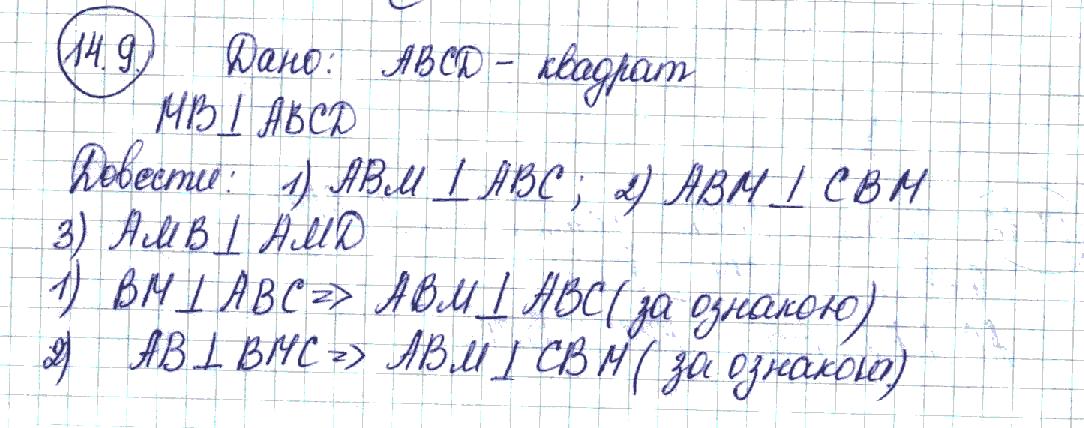 14.9. Дано: ABCD - квадрат
MB ⊥ ABCD
Довести: 1) ABM ⊥ ABC; 2) ABM ⊥ CBM
3) AMB ⊥ AMD
1) BM ⊥ ABC => ABM ⊥ ABC (за ознакою)
2) AB ⊥ BMC => ABM ⊥ CBM (за ознакою)